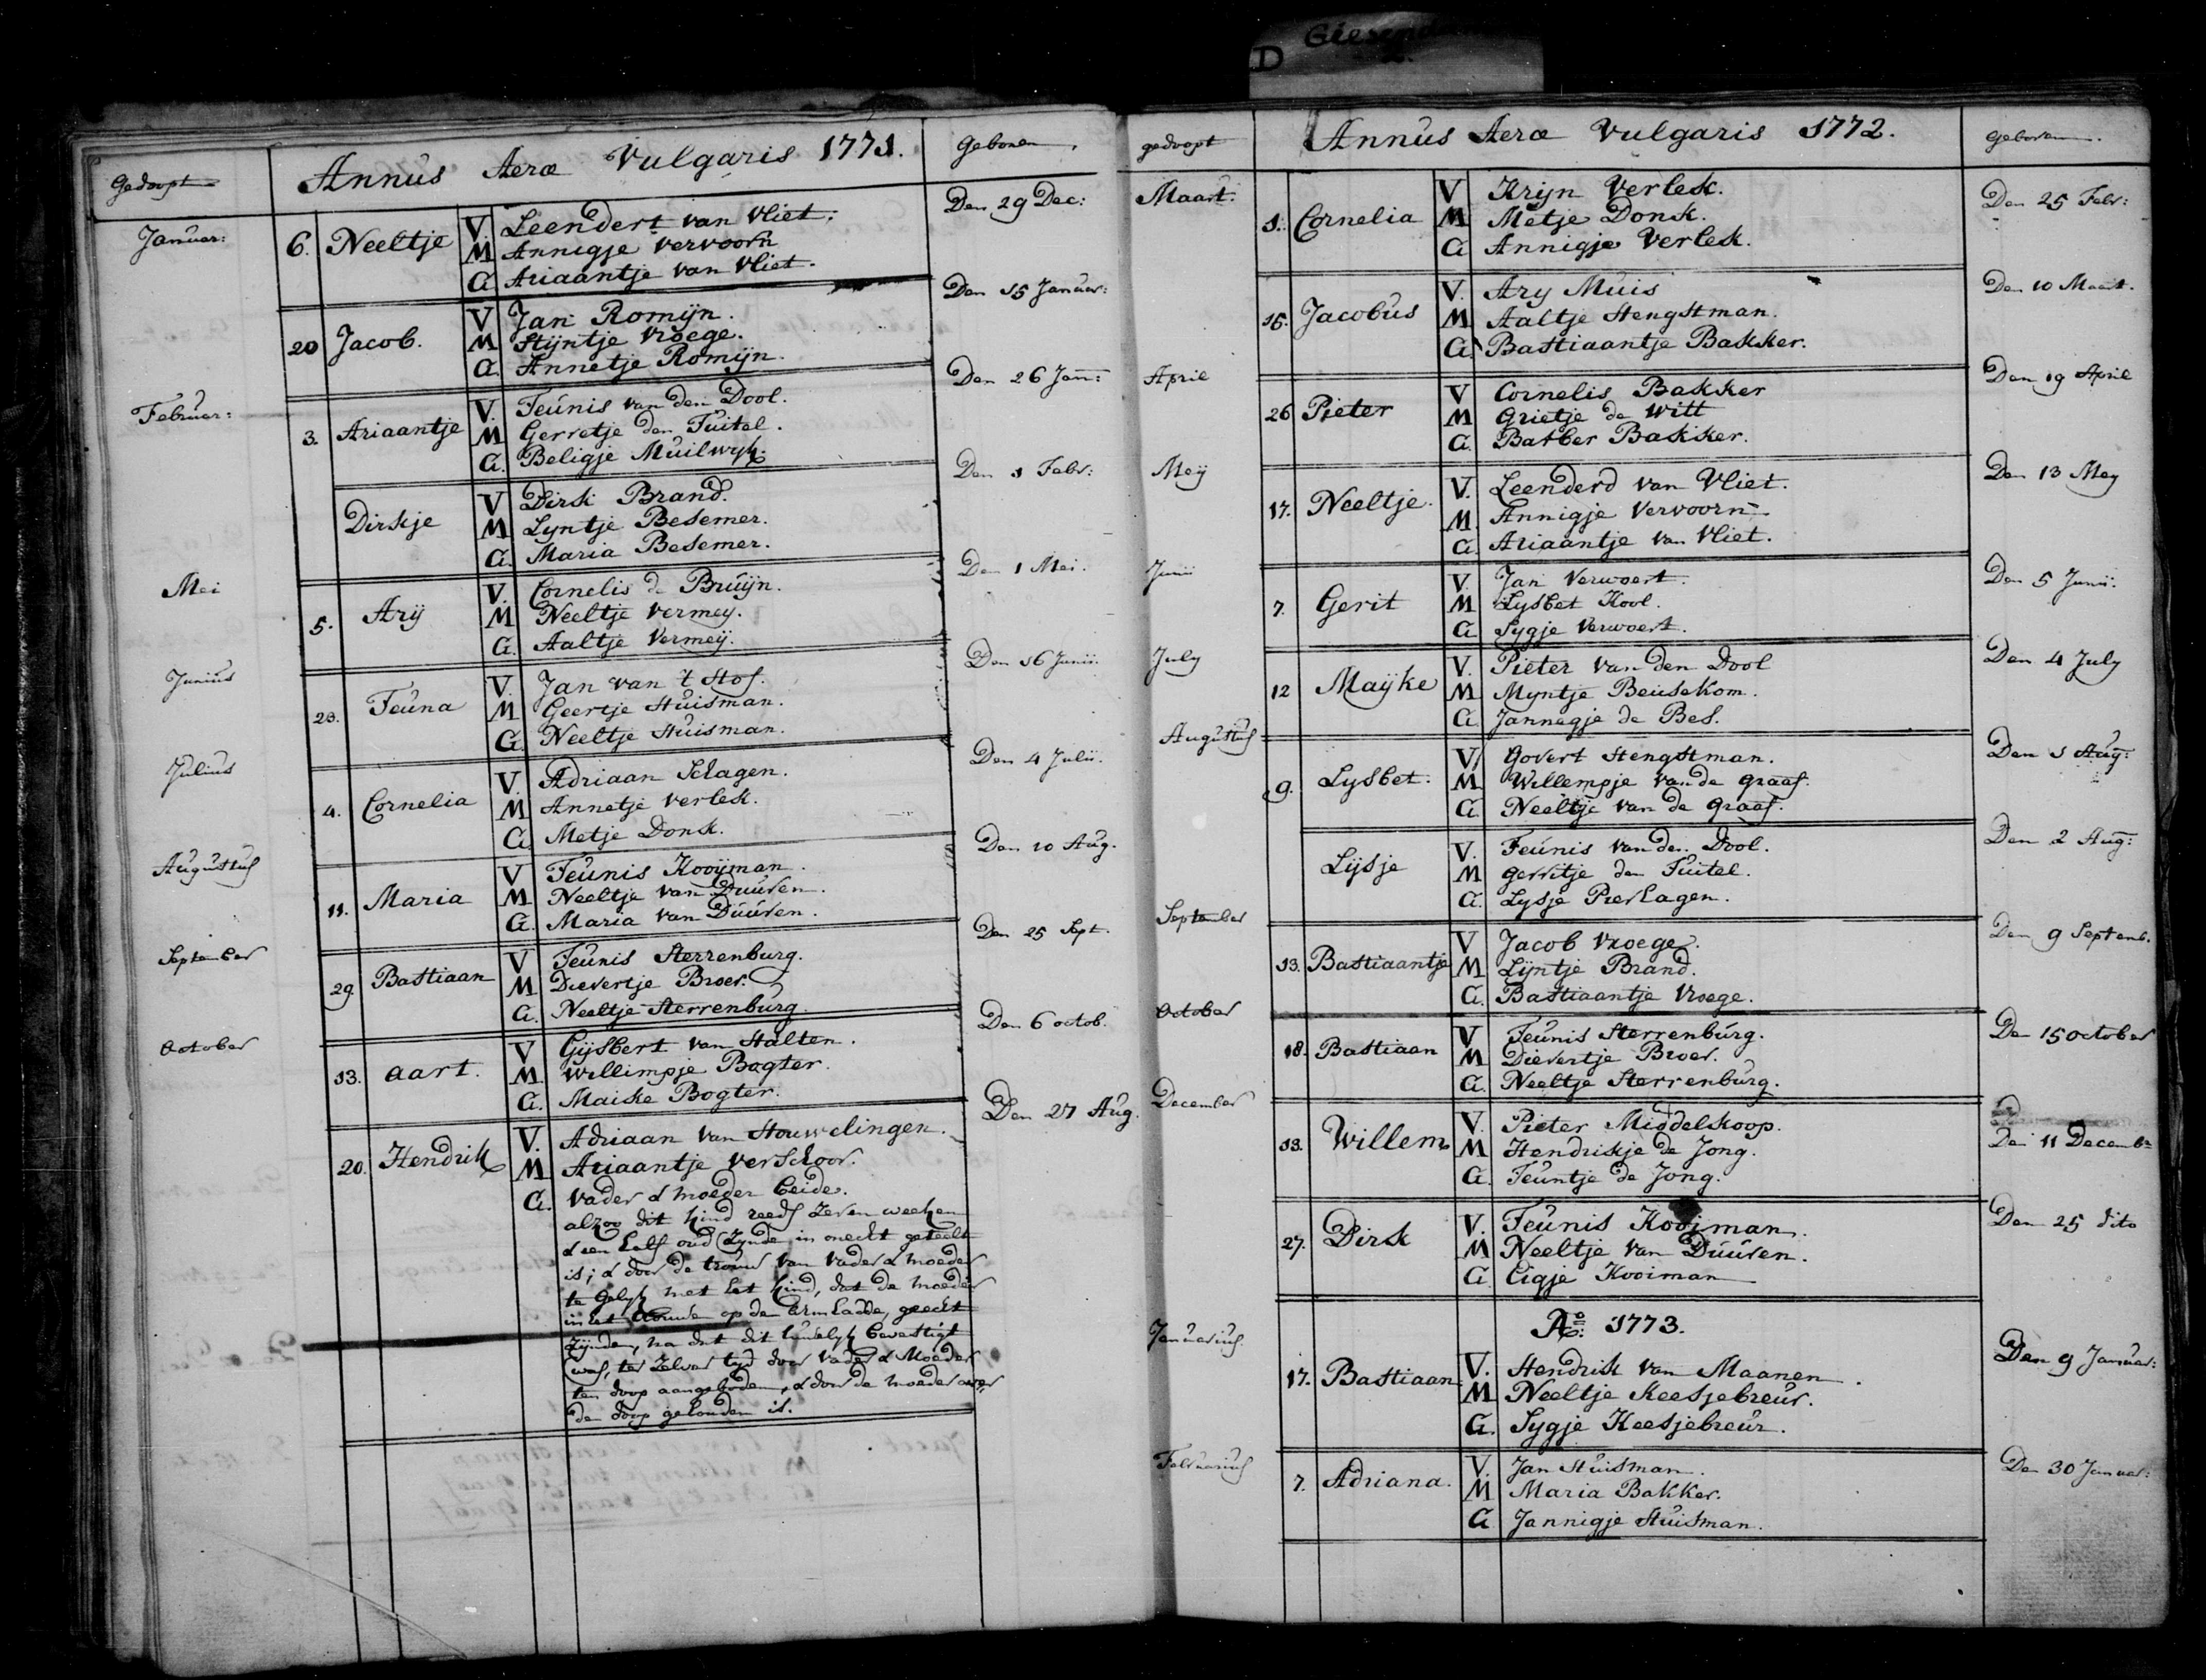 D Giesend
Gedoopt Annus Aerae Vulgaris 1771. Geboren.
Januar: 6. Neeltje V. Leendert van Vliet. Den 29 Dec:
M Annigje Vervoorn
G Ariaantje van Vliet.
20 Jacob. V Jan Romijn. Den 15 Januar:
M Stijntje Vroege.
G. Annetje Romijn.
Februar: 3. Ariaantje V. Teunis van den Dool. Den 26 Jan:
M Gerretje den Tuitel.
G. Beligje Muilwyk.
Dirkje V Dirk Brand. Den 1 Febr:
M Lyntje Besemer.
G. Maria Besemer.
Mei 5. Arij V. Cornelis de Bruijn. Den 1 Mei.
M Neeltje Vermey.
G. Aaltje Vermeij.
Junius 23. Teuna V. Jan van 't Hof. Den 16 Junii.
M Geertje Huisman.
G. Neeltje Huisman.
Julius 4. Cornelia V. Adriaan Schagen. Den 4 Julii.
M Annetje Verlek.
G Metje Donk.
Augustus 11. Maria V Teunis Kooijman. Den 10 Aug.
M Neeltje van Duuren.
G. Maria van Duuren.
September 29. Bastiaan V Teunis Sterrenburg. Den 25 Sept.
M Dievertje Broer.
G. Neeltje Sterrenburg
October 13. Aart. V Gijsbert van Halten. Den 6 octob.
M. Willimpje Bogter.
G. Maike Bogter.
20. Hendrik V. Adriaan van Houwelingen. Den 27 Aug.
M Ariaantje Verschoor.
G. Vader & Moeder beide.
alzoo dit kind reeds zeven weeken
& een half oud Zynde in onecht geteelt
is; & door de trouw van Vader & moeder
te gelyk met het kind, dat de moeder
in het trouwen op den arm hadde, geecht
Zijnde, na dat dit huwelyk bevestigt
was, ter Zelver tyd door Vader & Moeder
ten doop aangeboden, & door de moeder over
den doop gehouden is.
gedoopt Annus Aerae Vulgaris 1772. Geboren.
Maart: 1. Cornelia V Krijn Verlek. Den 25 Febr:
M Metje Donk.
G Annigje Verlek.
15. Jacobus V. Ary Muis Den 10 Maart.
M Aaltje Hengstman.
G. Bastiaantje Bakker.
April 26 Pieter V Cornelis Bakker Den 19 April
M Grietje de Witt
G. Barber Bakker.
Meij 17. Neeltje. V. Leenderd van Vliet. Den 13 Mey
M. Annigje Vervoorn
G. Ariaantje van Vliet.
Junii 7. Gerit V. Jan Verwoert. Den 5 Junii.
M Lysbet Kool.
G Sygje Verwoert.
July 12 Maijke V. Pieter van den Dool Den 4 July
M Myntje Beusekom.
G. Jannegje de Bes.
Augustus 9. Lysbet. V. Govert Hengstman. Den 1 Aug:
M Willempje van de Graaf.
G. Neeltje van de Graaf.
Lijsje V. Teunis van den Dool. Den 2 Aug:
M gerritje den Tuitel.
G. Lysje Pierhagen.
September 13. Bastiaantje V Jacob Vroege. Den 9 Septemb.
M Lijntje Brand.
G. Bastiaantje Vroege.
October 18. Bastiaan V Teunis Sterrenburg. Den 15 october
M Dievertje Broer.
G. Neeltje Sterrenburg.
December 13. Willem V. Pieter Middelkoop. Den 11 Decemb
M Hendrikje de Jong.
G. Teuntje de Jong.
27. Dirk V. Teunis Kooiman. Den 25 dito
M Neeltje van Duuren.
G Cigje Kooiman
Ao: 1773.
Januarius. 17. Bastiaan V. Hendrik van Maanen. Den 9 Januar:
M Neeltje Keesjebreur.
G. Sygje Keesjebreur.
Februarius 7. Adriana. V. Jan Huisman. Den 30 Januar:
M Maria Bakker.
G. Jannigje Huisman.